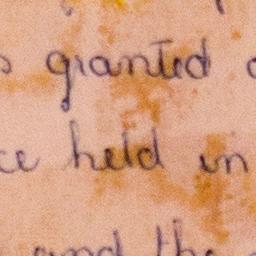 granted
held in
and the